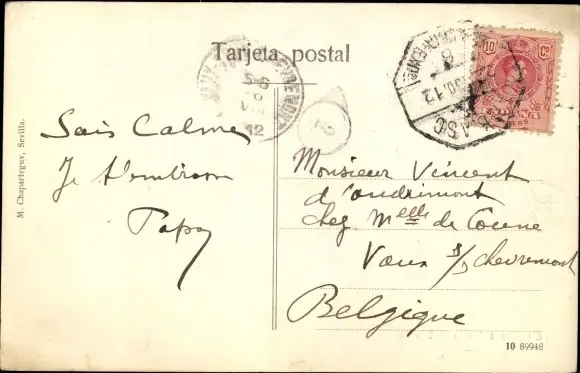 Tarjeta postal
M. Chaparteguy, Sevilla.
Sois Calme
Je t'embrasse
Papa
10 Cs
12
5-6
12
2
Monsieur Vincent
d'andrimont
chez Melle de Coune
Vaux s/s chevremont
Belgique
10 89948